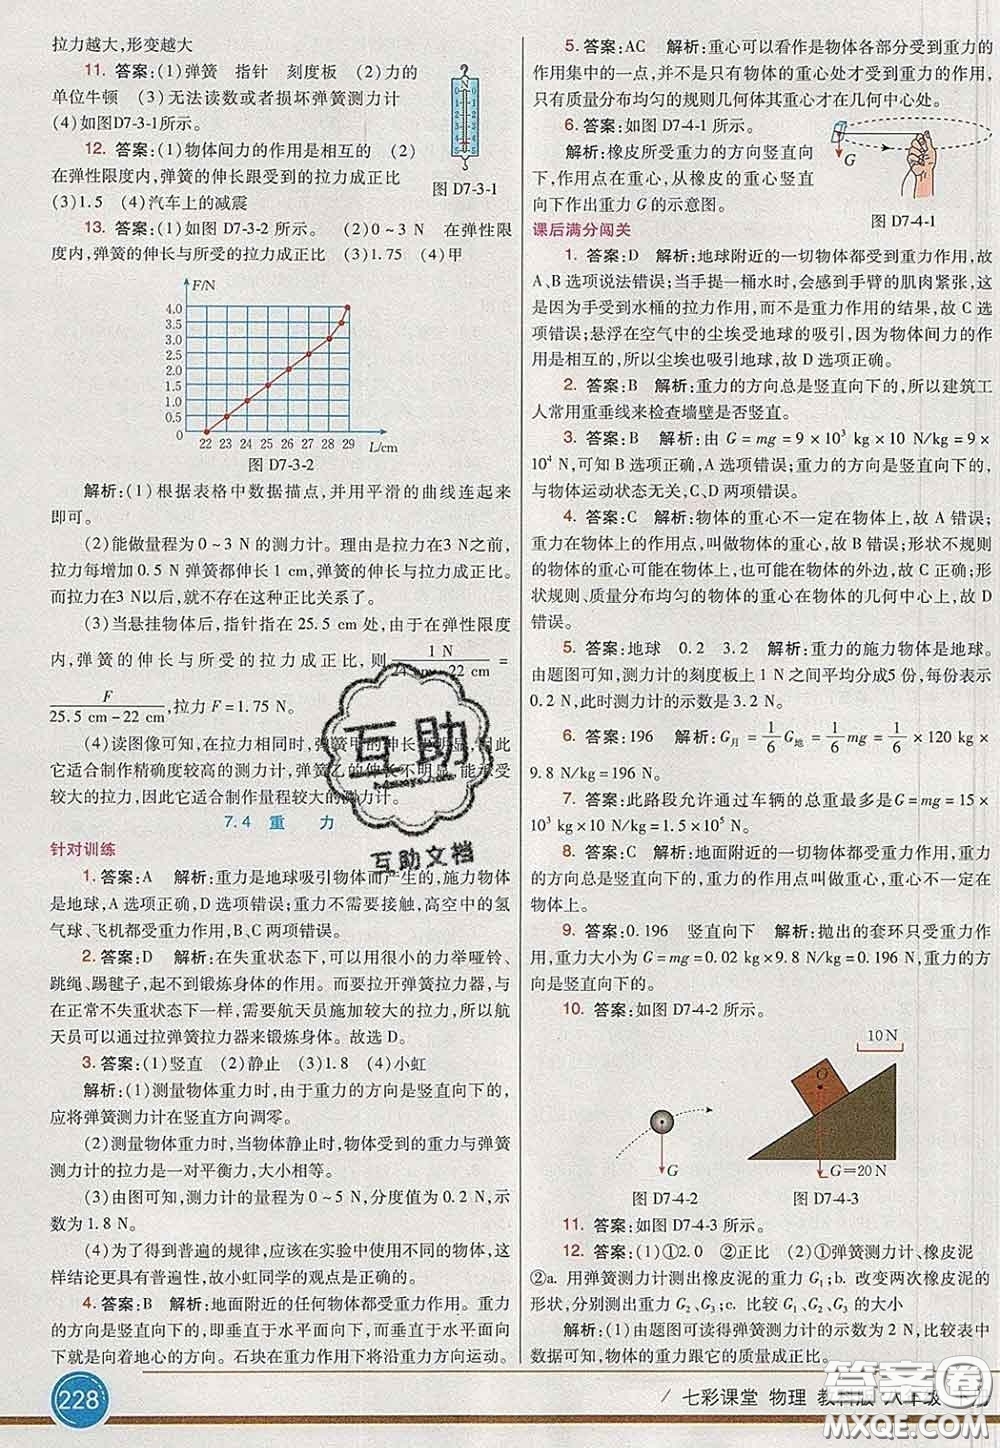 拉力越大,形变越大
11. 答案:(1)弹簧 指针 刻度板 (2)力的
单位牛顿 (3)无法读数或者损坏弹簧测力计
(4)如图D7-3-1所示。
12. 答案:(1)物体间力的作用是相互的 (2)
在弹性限度内,弹簧的伸长跟受到的拉力成正比
(3)1.5 (4)汽车上的减震
N
图 D7-3-1
13. 答案:(1)如图 D7-3-2 所示。 (2)0~3 N 在弹性限
度内,弹簧的伸长与所受的拉力成正比 (3)1.75 (4)甲
F/N
4.0
3.5
3.0
2.5
2.0
1.5
1.0
0.5
0
22 23 24 25 26 27 28 29 L/cm
图 D7-3-2
解析:(1)根据表格中数据描点,并用平滑的曲线连起来
即可。
(2)能做量程为 0~3 N 的测力计。理由是拉力在3 N之前,
拉力每增加 0.5 N 弹簧伸长 1 cm,弹簧的伸长与拉力成正比。
拉力在3 N以后,就不存在这种正比关系了。
(3)当悬挂物体后,指针指在 25.5 cm 处,由于在弹性限度
内,弹簧的伸长与所受的拉力成正比,则 1 N / 24 cm-22 cm =
F / 25.5 cm-22 cm,拉力 F=1.75 N。
(4)读图像可知,在拉力相同时,弹簧甲的伸长明显,因此
它适合制作精确度较高的测力计,弹簧乙的伸长不明显,能承受
较大的拉力,因此它适合制作量程较大的测力计。
7.4 重 力
针对训练
1. 答案:A 解析:重力是地球吸引物体而产生的,施力物体
是地球,A 选项正确,D 选项错误;重力不需要接触,高空中的氢
气球、飞机都受重力作用,B、C 两项错误。
2. 答案:D 解析:在失重状态下,可以用很小的力举哑铃、
跳绳、踢毽子,起不到锻炼身体的作用。而要拉开弹簧拉力器,与
在正常不失重状态下一样,需要航天员施加较大的拉力,所以航
天员可以通过拉弹簧拉力器来锻炼身体。故选 D。
3. 答案:(1)竖直 (2)静止 (3)1.8 (4)小虹
解析:(1)测量物体重力时,由于重力的方向是竖直向下的,
应将弹簧测力计在竖直方向调零。
(2)测量物体重力时,当物体静止时,物体受到的重力与弹簧
测力计的拉力是一对平衡力,大小相等。
(3)由图可知,测力计的量程为 0~5 N,分度值为 0.2 N,示
数为 1.8 N。
(4)为了得到普遍的规律,应该在实验中使用不同的物体,这
样结论更具有普遍性,故小虹同学的观点是正确的。
4. 答案:B 解析:地面附近的任何物体都受重力作用。重力
的方向是竖直向下的,即垂直于水平面向下,垂直于水平面向下
就是向着地心的方向。石块在重力作用下将沿竖直方向运动。
5. 答案:AC 解析:重心可以看作是物体各部分受到重力的
作用集中的一点,并不是只有物体的重心处才受到重力的作用,
只有质量分布均匀的规则几何体其重心才在几何中心处。
6. 答案:如图 D7-4-1 所示。
解析:橡皮所受重力的方向竖直向
下,作用点在重心,从橡皮的重心竖直
向下作出重力 G 的示意图。
G
图 D7-4-1
课后满分闯关
1. 答案:D 解析:地球附近的一切物体都受到重力作用,故
A、B 选项说法错误;当手提一桶水时,会感到手臂的肌肉紧张,这
是因为手受到水桶的拉力作用,而不是重力作用的结果,故 C 选
项错误;悬浮在空气中的尘埃受地球的吸引,因为物体间力的作
用是相互的,所以尘埃也吸引地球,故 D 选项正确。
2. 答案:B 解析:重力的方向总是竖直向下的,所以建筑工
人常用重垂线来检查墙壁是否竖直。
3. 答案:B 解析:由 G=mg=9×10³ kg×10 N/kg=9×
10⁴ N,可知 B 选项正确,A 选项错误;重力的方向是竖直向下的,
与物体运动状态无关,C、D 两项错误。
4. 答案:C 解析:物体的重心不一定在物体上,故 A 错误;
重力在物体上的作用点,叫做物体的重心,故 B 错误;形状不规则
的物体的重心可能在物体上,可能在物体的外边,故 C 正确;形
状规则、质量分布均匀的物体的重心在物体的几何中心上,故 D
错误。
5. 答案:地球 0.2 3.2 解析:重力的施力物体是地球。
由题图可知,测力计的刻度板上 1 N 之间平均分成5 份,每份表示
0.2 N,此时测力计的示数是 3.2 N。
6. 答案:196 解析:G月=1/6 G地=1/6 mg=1/6×120 kg
×9.8 N/kg=196 N。
7. 答案:此路段允许通过车辆的总重最多是G=mg=15×
10³ kg×10 N/kg=1.5×10⁵ N。
8. 答案:C 解析:地面附近的一切物体都受重力作用,重力
的方向总是竖直向下的,重力的作用点叫做重心,重心不一定都
在物体上。
9. 答案:0.196 竖直向下 解析:抛出的套环只受重力作
用,重力大小为 G=mg=0.02 kg×9.8 N/kg=0.196 N,方向
是竖直向下的。
10. 答案:如图 D7-4-2 所示。
G
图 D7-4-2
10 N
O
G=20 N
图 D7-4-3
11. 答案:如图 D7-4-3 所示。
12. 答案:(1)①2.0 ②正比 (2)①弹簧测力计、橡皮泥
②a. 用弹簧测力计测出橡皮泥的重力 G₁;b. 改变两次橡皮泥的
形状,分别测出重力 G₂、G₃;c. 比较 G₁、G₂、G₃ 的大小
解析:(1)由题图可读得弹簧测力计的示数为 2 N,比较表中
数据可知,物体的重力跟它的质量成正比。
互助
互助文档
228
七彩课堂 物理 教科版 八年级
答案圈
MXQE.COM